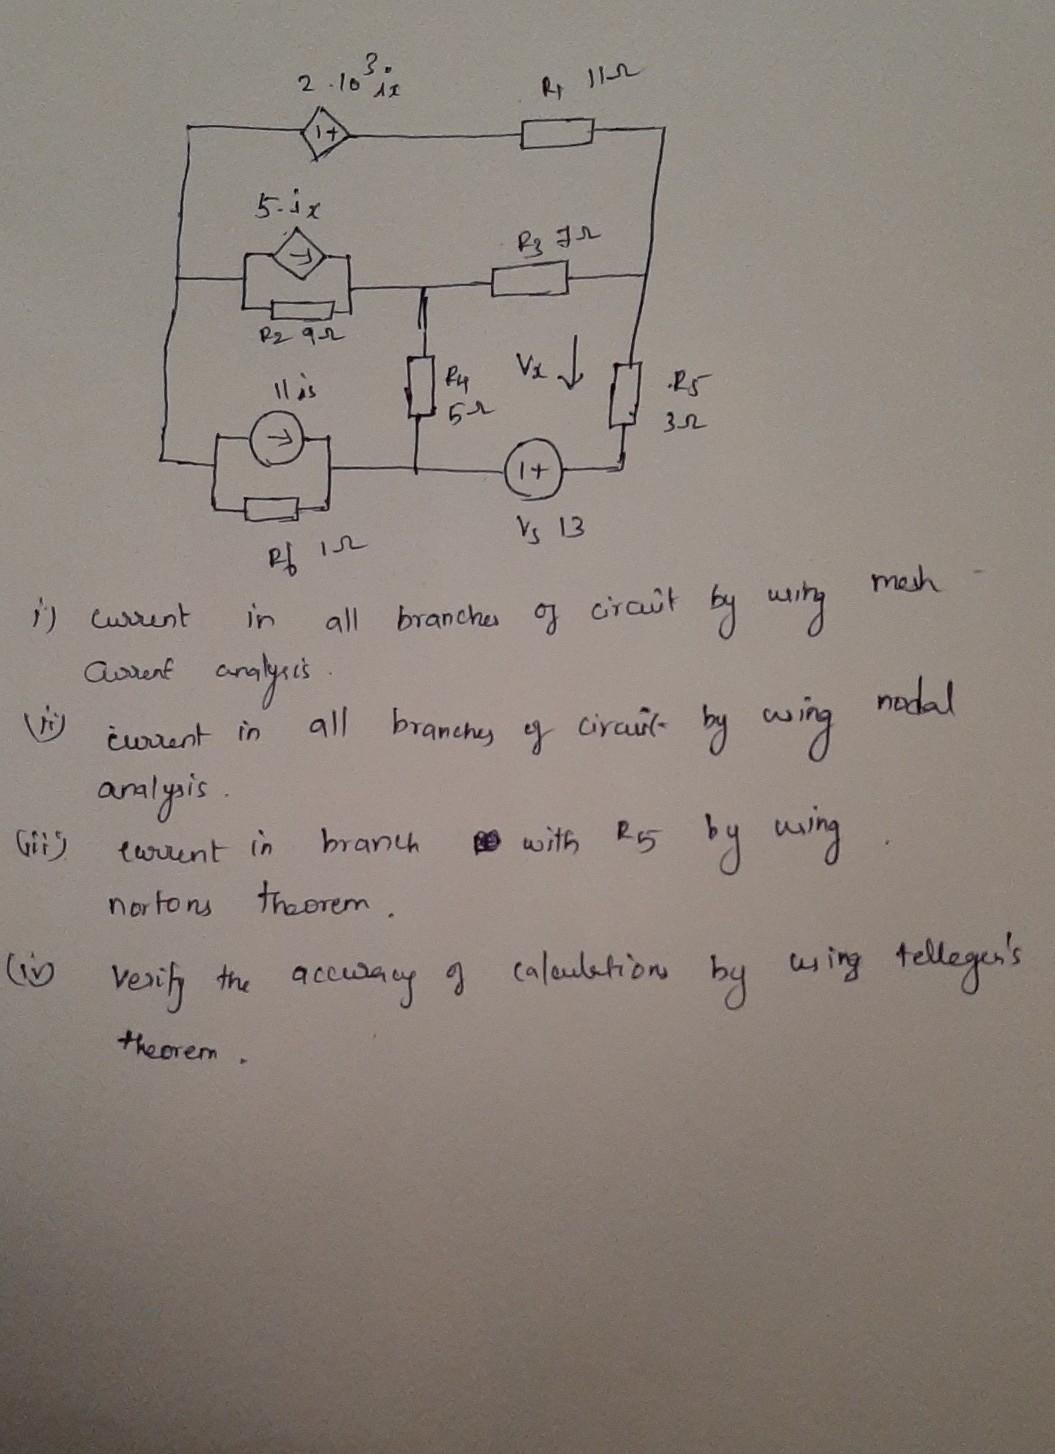 2 · 10³ ix
R1 11Ω
1+
5·ix
R3 7Ω
R2 9Ω
Vx
R4
5Ω
R5
3Ω
11 is
1+
R6 1Ω
Vs 13
i) current in all branches of circuit by using mesh -
current analysis.
(ii) current in all branches of circuit by using nodal
analysis.
(iii) current in branch with R5 by using
nortons theorem.
(iv) Verify the accuracy of calculations by using tellegen's
theorem.